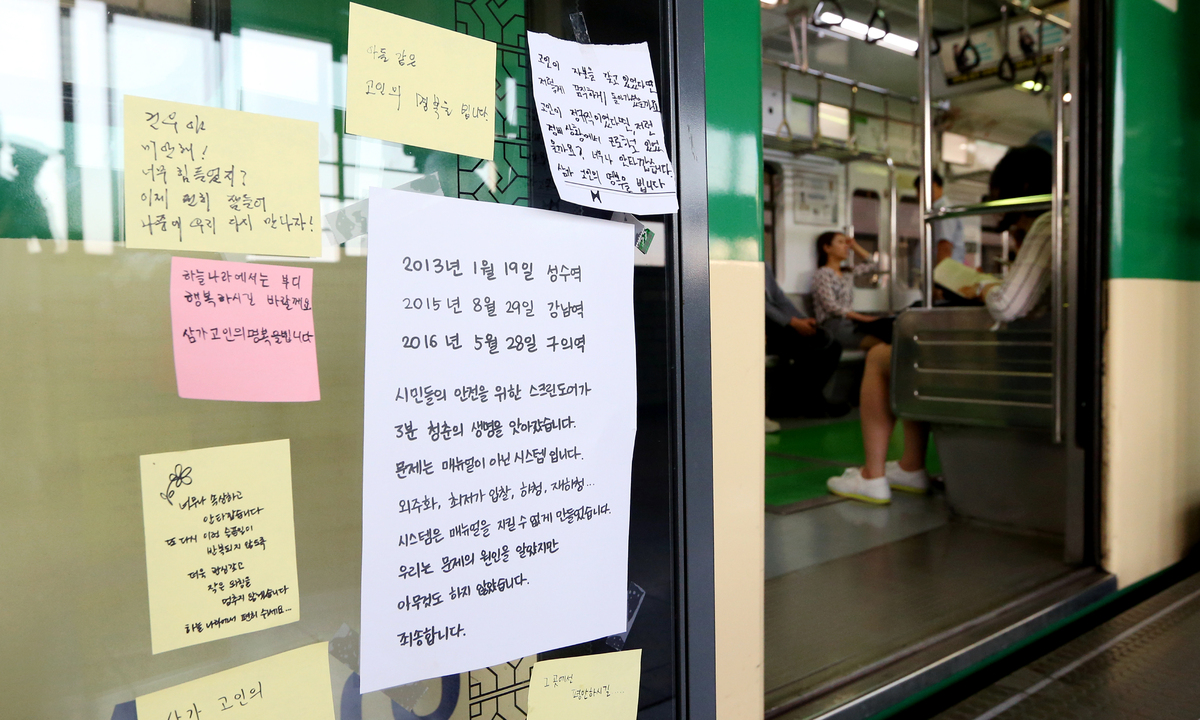 아들 같은
고인의 명복을 빕니다
고인이 자부를 갖고 있었다면
저렇게 끔찍하게 돌아가셨을까요
고인이 정규직이었다면, 저런
을까요? 너무나 안타깝습니다.
삼가 고인의 명복을 빕니다
미안해!
너무 힘들었지?
이제 편히 잠들어
나중에 우리 다시 만나자!
하늘나라에서는 부디
행복하시길 바랄께요
삼가고인의명복을빕니다
2013년 1월 19일 성수역
2015년 8월 29일 강남역
2016년 5월 28일 구의역
시민들의 안전을 위한 스크린도어가
3분 청춘의 생명을 앗아갔습니다.
문제는 매뉴얼이 아닌 시스템 입니다.
외주화, 최저가 입찰, 하청, 재하청...
시스템은 매뉴얼을 지킬 수 없게 만들었습니다.
우리는 문제의 원인을 알았지만
아무것도 하지 않았습니다.
죄송합니다.
너무나 속상하고
안타깝습니다
또 다시 이런 슬픔이
반복되지 않도록
더욱 관심갖고
작은 외침을
멈추지 않겠습니다
하늘 나라에서 편히 쉬세요...
삼가 고인의
그 곳에선
편안하시길.....